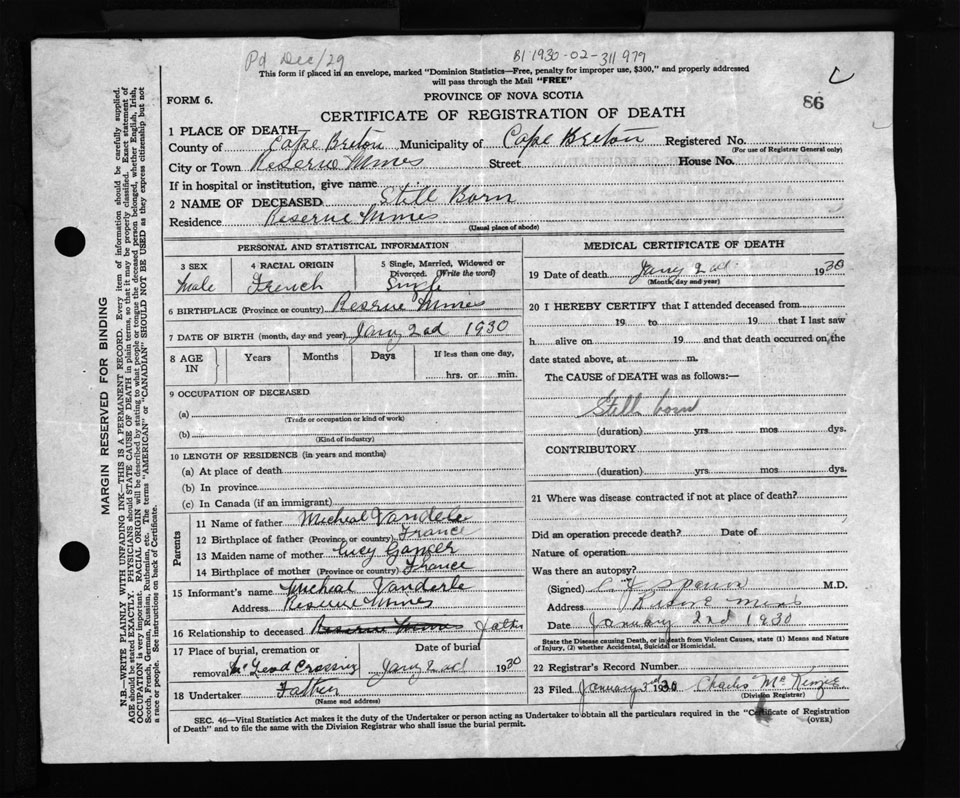 Pd Dec/29
B1 1930-02-311979
This form if placed in an envelope, marked "Dominion Statistics—Free, penalty for improper use, $300," and properly addressed
will pass through the Mail "FREE"
86
FORM 6.
PROVINCE OF NOVA SCOTIA
CERTIFICATE OF REGISTRATION OF DEATH
1 PLACE OF DEATH
County of Cape Breton Municipality of Cape Breton Registered No.
(For use of Registrar General only)
City or Town Reserve Mines Street House No.
If in hospital or institution, give name
2 NAME OF DECEASED Still Born
Residence Reserve Mines
(Usual place of abode)
PERSONAL AND STATISTICAL INFORMATION
3 SEX 4 RACIAL ORIGIN 5 Single, Married, Widowed or
Divorced. (Write the word)
Male French Single
6 BIRTHPLACE (Province or country) Reserve Mines
7 DATE OF BIRTH (month, day and year) Jany 2nd 1930
8 AGE IN Years Months Days If less than one day,
hrs. or min.
9 OCCUPATION OF DECEASED
(a)
(Trade or occupation or kind of work)
(b)
(Kind of industry)
10 LENGTH OF RESIDENCE (in years and months)
(a) At place of death
(b) In province
(c) In Canada (if an immigrant)
Parents
11 Name of father Micheal Vandele
12 Birthplace of father (Province or country) France
13 Maiden name of mother Lucy
14 Birthplace of mother (Province or country) France
15 Informant's name Micheal Vanderle
Address Reserve Mines
16 Relationship to deceased Reserve Mines Father
17 Place of burial, cremation or Date of burial
removal McLeod Crossing Jany 2nd 1930
18 Undertaker Father
(Name and address)
MEDICAL CERTIFICATE OF DEATH
19 Date of death Jany 2nd 1930
(Month, day and year)
20 I HEREBY CERTIFY that I attended deceased from
19 to 19 that I last saw
h alive on 19 and that death occurred on the
date stated above, at m.
The CAUSE of DEATH was as follows:—
Still born
(duration) yrs mos dys.
CONTRIBUTORY
(duration) yrs mos dys.
21 Where was disease contracted if not at place of death?
Did an operation precede death? Date of
Nature of operation
Was there an autopsy?
(Signed) M.D.
Address Reserve Mines
Date January 2nd 1930
State the Disease causing Death, or in death from Violent Causes, state (1) Means and Nature
of Injury, (2) whether Accidental, Suicidal or Homicidal.
22 Registrar's Record Number
23 Filed January 3rd 1930 Charles McKenzie
(Division Registrar)
SEC. 46—Vital Statistics Act makes it the duty of the Undertaker or person acting as Undertaker to obtain all the particulars required in the "Certificate of Registration
of Death" and to file the same with the Division Registrar who shall issue the burial permit.
(OVER)
MARGIN RESERVED FOR BINDING
N.B.—WRITE PLAINLY WITH UNFADING INK—THIS IS A PERMANENT RECORD. Every item of information should be carefully supplied.
AGE should be stated EXACTLY. PHYSICIANS should STATE CAUSE OF DEATH in plain terms, so that it may be properly classified. Exact statement of
OCCUPATION is very important. RACIAL ORIGIN will be described by stating to what people or tongue the deceased person belonged, whether English, Irish,
Scotch, French, German, Russian, Ruthenian, etc. The terms "AMERICAN" or "CANADIAN" SHOULD NOT BE USED as they express citizenship but not
a race or people. See instructions on back of Certificate.